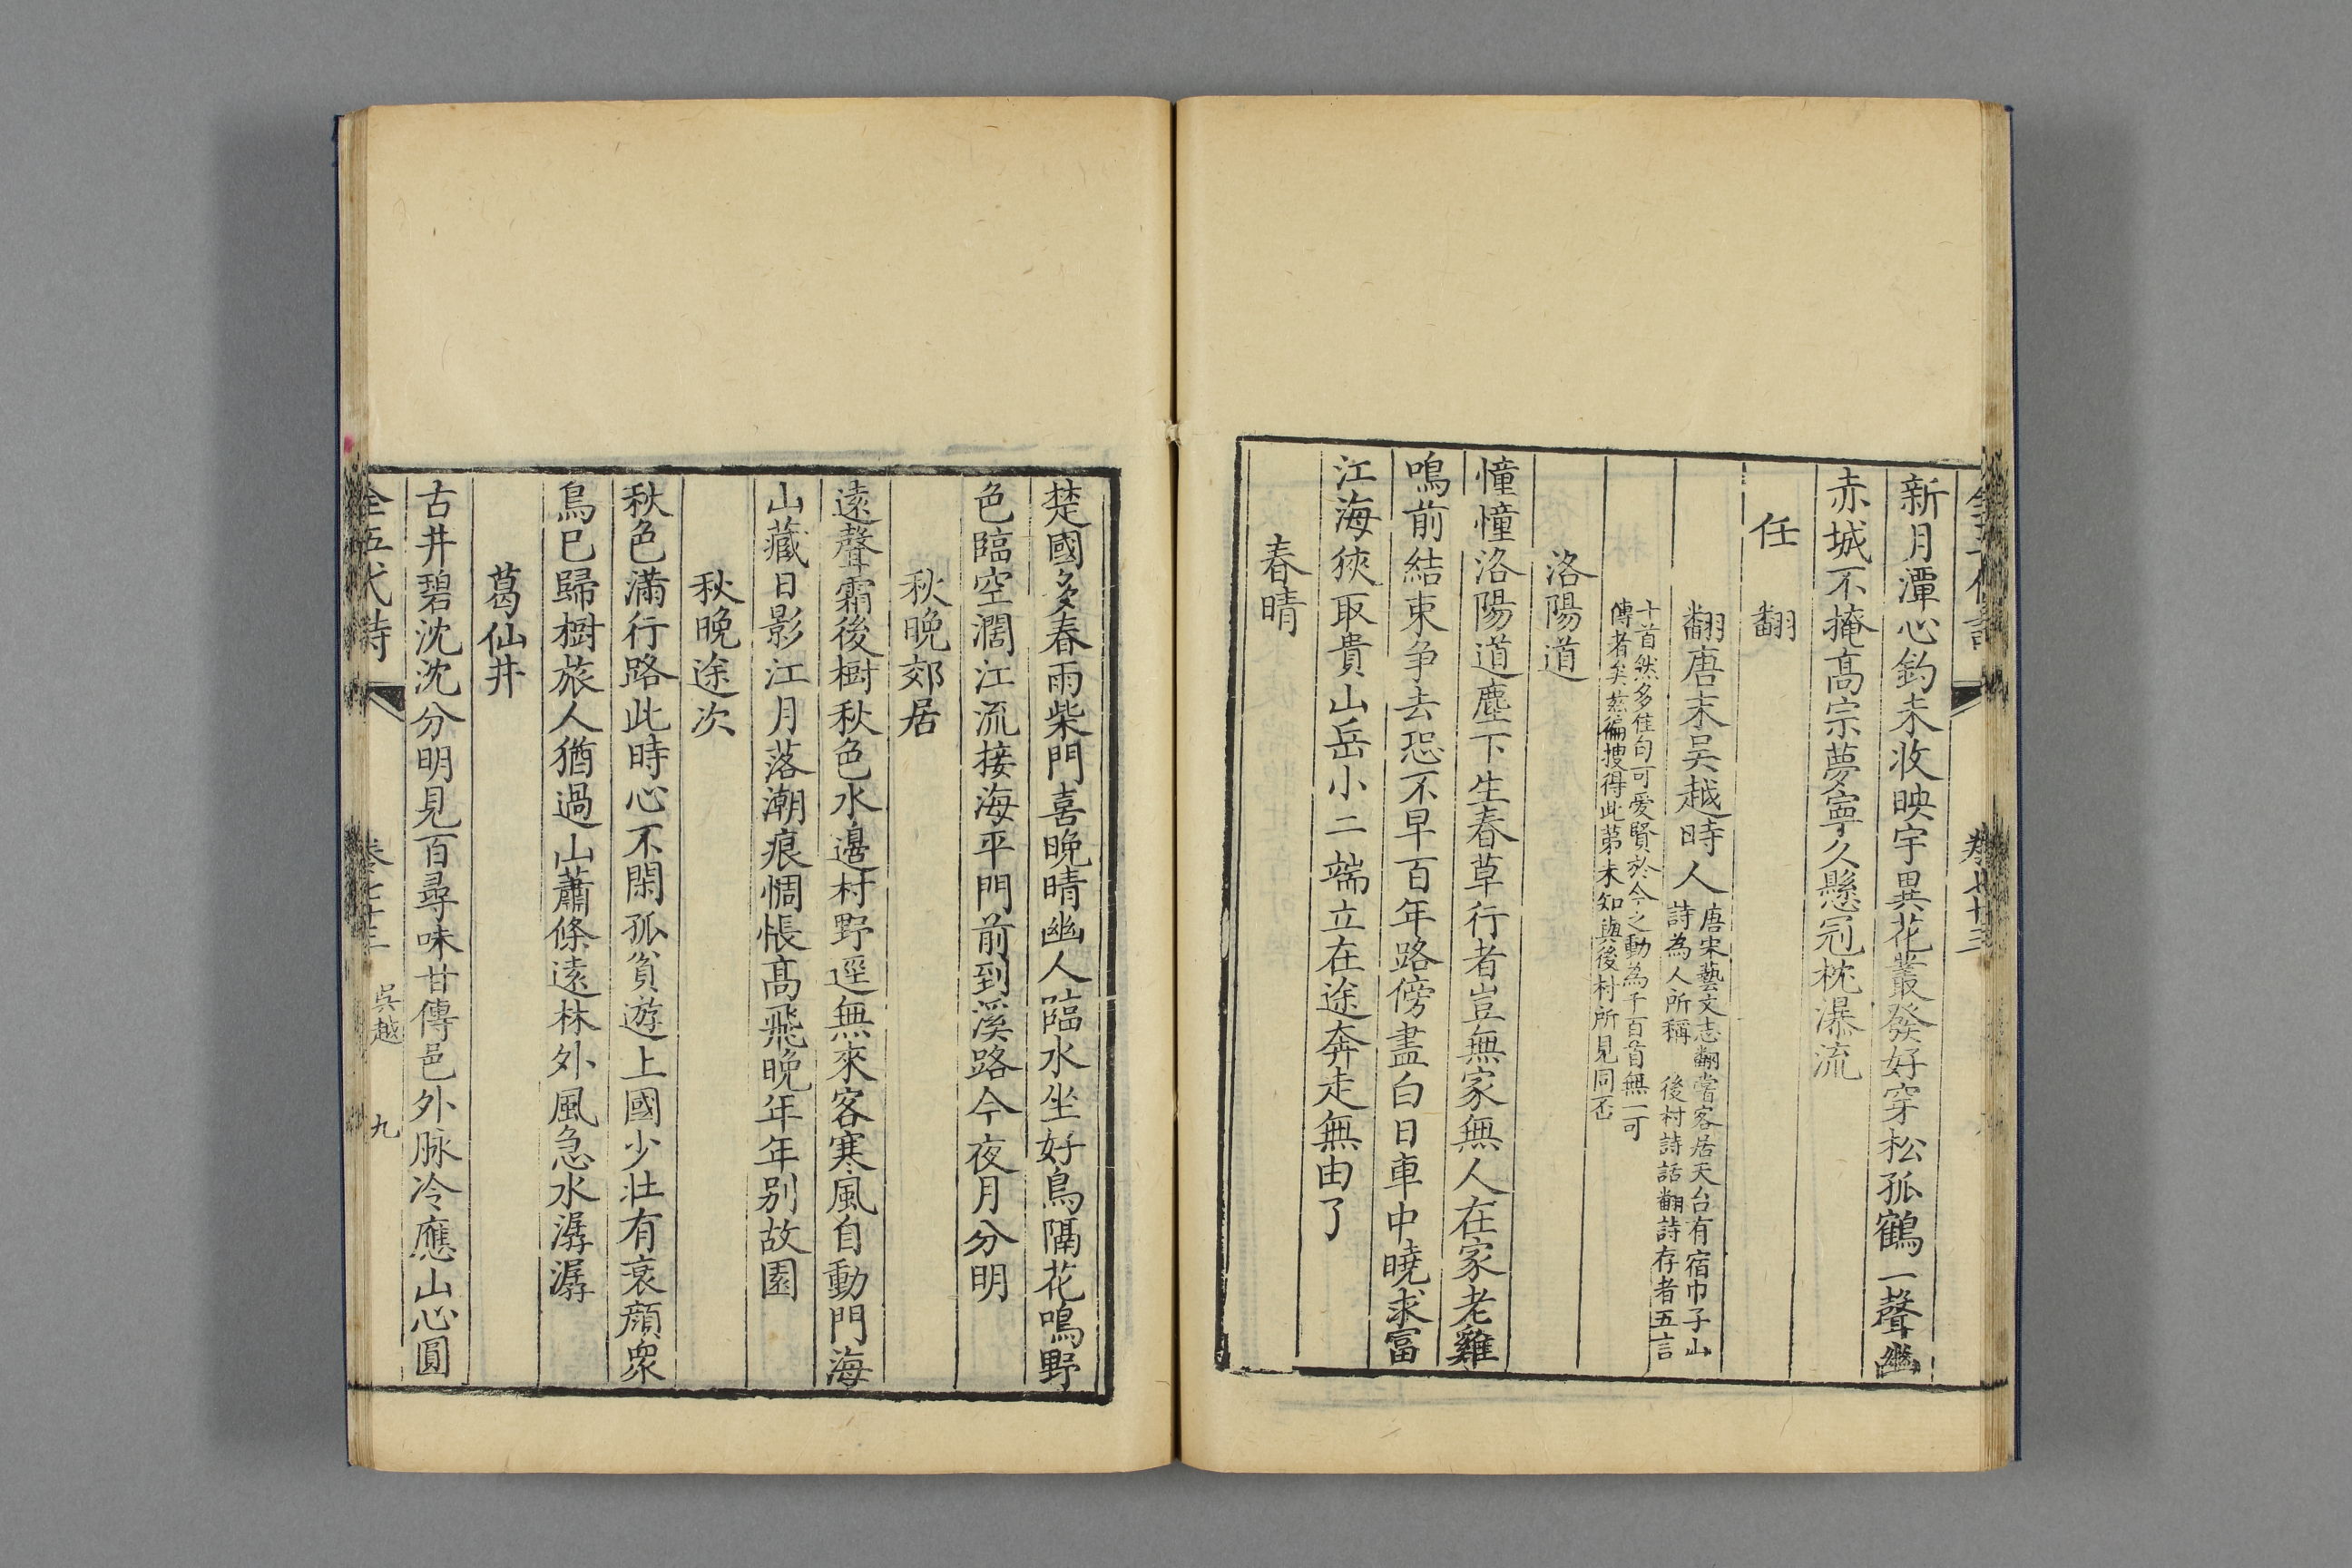 新月潭心釣未收映宇異花叢發好穿松孤鶴一聲幽
赤城不掩高宗夢寧久懸冠枕瀑流
任 翻
翻唐末吳越時人
唐宋藝文志翻嘗客居天台有宿巾子山
詩為人所稱 後村詩話翻詩存者五言
十首然多佳句可愛賢於今之動為千百首無一可
傳者矣茲徧搜得此第未知與後村所見同否
洛陽道
憧憧洛陽道塵下生春草行者豈無家無人在家老雞
鳴前結束爭去恐不早百年路傍盡白日車中曉求富
江海狹取貴山岳小二端立在途奔走無由了
春晴
楚國多春雨柴門喜晚晴幽人臨水坐好鳥隔花鳴野
色臨空濶江流接海平門前到溪路今夜月分明
秋晚郊居
遠聲霜後樹秋色水邊村野逕無來客寒風自動門海
山藏日影江月落潮痕惆悵高飛晚年年別故園
秋晚途次
秋色滿行路此時心不閑孤貧遊上國少壯有衰顏衆
鳥已歸樹旅人猶過山蕭條遠林外風急水潺潺
葛仙井
古井碧沈沈分明見百尋味甘傳邑外脉冷應山心圓
全五代詩 卷七十三 吳越 九